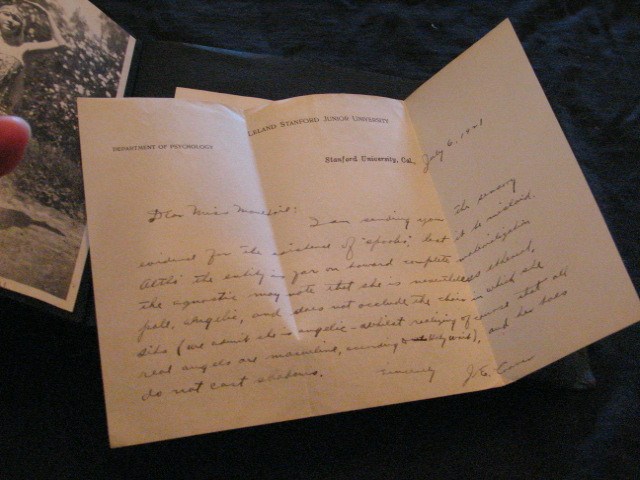 LELAND STANFORD JUNIOR UNIVERSITY
DEPARTMENT OF PSYCHOLOGY
Stanford University, Cal., July 6, 1921
Dear Miss
I am sending you the
evidence for the existence of "spooks," lest be misled.
the entity is far on toward complete
the agnostic may note that she is nevertheless ethereal,
pale, angelic, and does not occlude the chair in which she
sits (we admit she is angelic - whilst realizing of course that all
real angels are masculine, according to ), and her does
do not cast shadows.
Sincerely J. E.